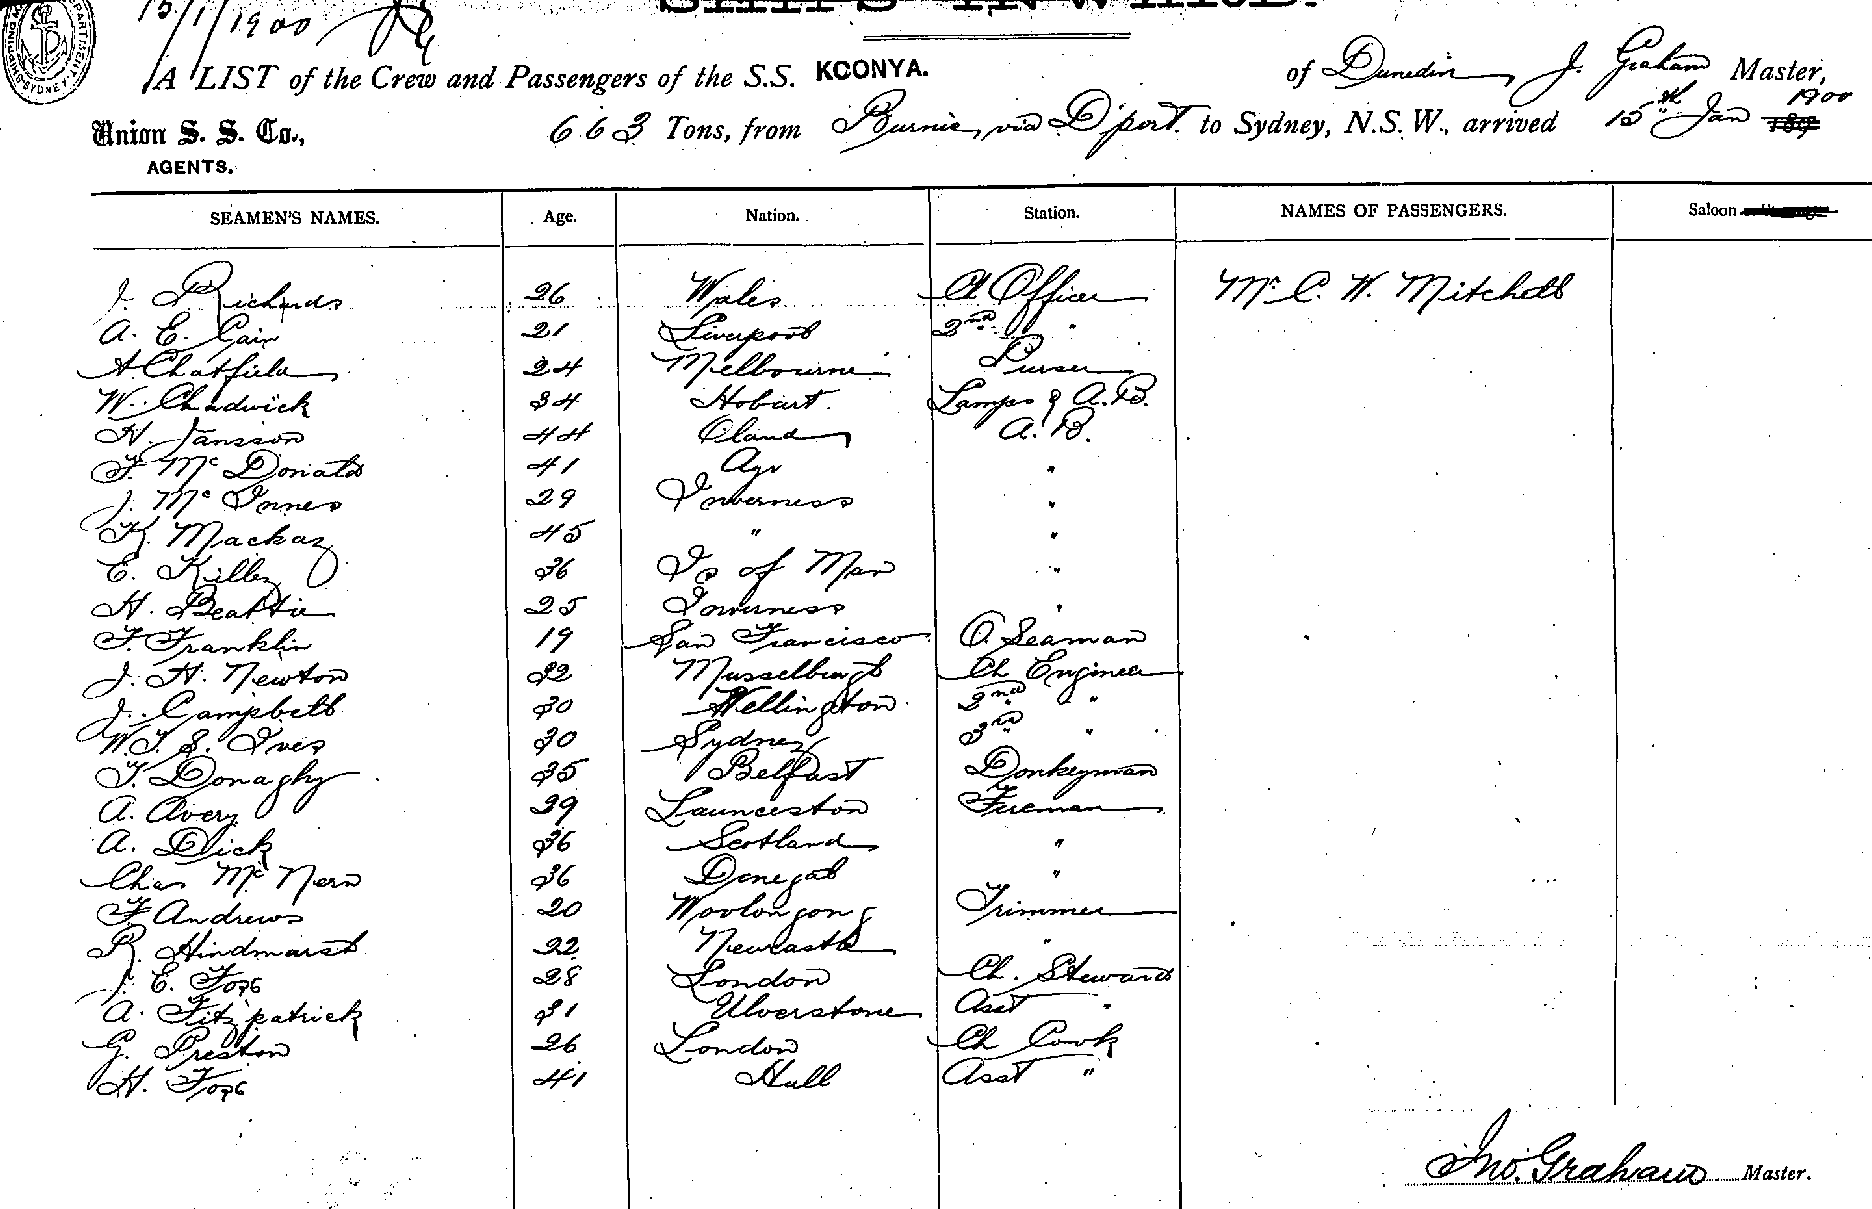 SHIPS INWARD.
15/1/1900
A LIST of the Crew and Passengers of the S.S. KOONYA. of Dunedin, J. Graham Master,
Union S. S. Co., AGENTS.
663 Tons, from Burnie via D'port to Sydney, N.S.W., arrived 15th Jan 1900
SEAMEN'S NAMES. Age. Nation. Station. NAMES OF PASSENGERS. Saloon
J. Richards 26 Wales Ch Officer Mr. C. W. Mitchell
A. E. Gain 21 Liverpool 2nd "
A Chatfield 24 Melbourne Purser
W. Chadwick 34 Hobart Lamps & A.B.
H. Jansson 44 Oland A.B.
F. McDonald 41 Ayr "
J. McInnes 29 Inverness "
K. Mackay 45 " "
E. Killey 36 Is of Man "
H. Beattie 25 Inverness "
F. Franklin 19 San Francisco O. Seaman
J. H. Newton 32 Musselburgh Ch Engineer
J. Campbell 30 Wellington 2nd "
W.T.S. Ives 30 Sydney 3rd "
T. Donaghy 35 Belfast Donkeyman
A. Avery 39 Launceston Fireman
A. Dick 36 Scotland "
Chas McNern 36 Donegal "
F. Andrews 20 Woolongong Trimmer
R. Hindmarsh 22 Newcastle "
J. E. Fogg 28 London Ch. Steward
A. Fitzpatrick 31 Ulverstone Asst "
G. Preston 26 London Ch Cook
H. Fogg 41 Hull Asst "
Jno. Graham Master.